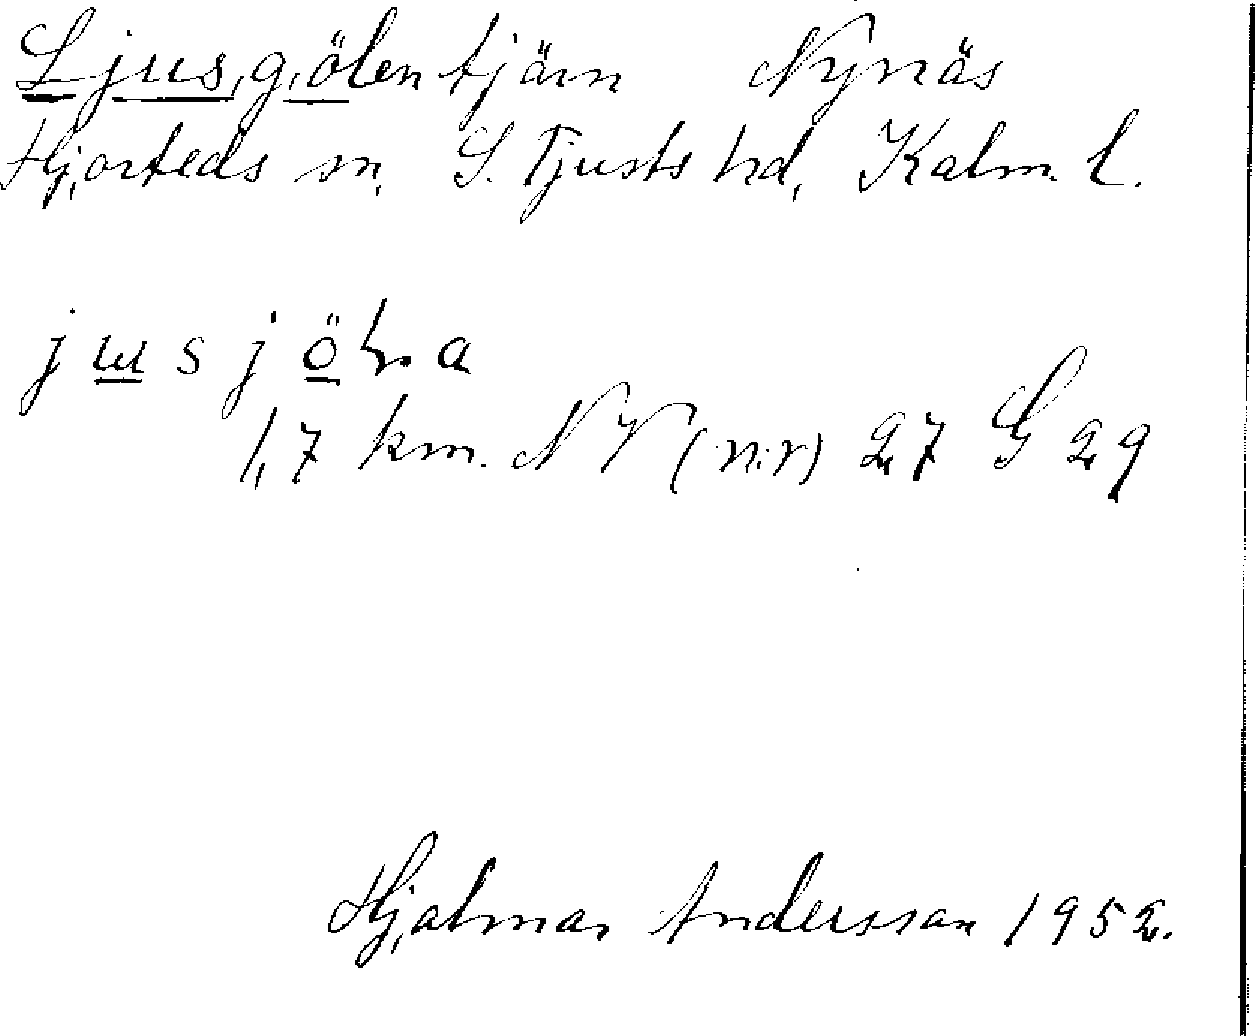 Ljusgölen tjärn Nynäs
Hjorteds sn, S. Tjusts hd, Kalm. l.
jusjöla
1,7 km. NV (n:r) 27 G 29
Hjalmar Andersson 1952.